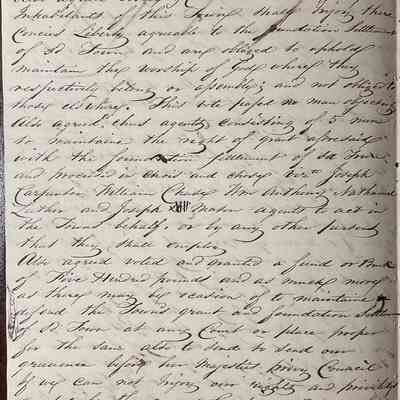 Inhabitants of this Town shall Injoy there
Concies Liberty agreable to the foundation Settlement
of sd Town and any obliged to uphold
maintain the worship of God where they
respectively belong or assembly and not obliged to
those elswhere. This vote passed no man objecting
Also agreed chus agents consisting of 5 men
to maintaine the right of grant aforesaid
with the foundation settlement of sd Town
and proceeded in chois and chose Joseph
Carpenter William Chase Wm Anthony Nathaniel
Luther and Joseph Mason agents to act in
the Towns behalf or by any other person
that they shall imploy
Also agreed voted and wanted a fund or Bank
of Five Hundred pounds and as much more
as there may be ocasion of to maintaine
defend the Towns grant and foundation Settlem
of sd Town at any Court or place proper
for the same also to send to send our
greavence before her Majestys privy Council
if we can not Injoy our rights and privileges